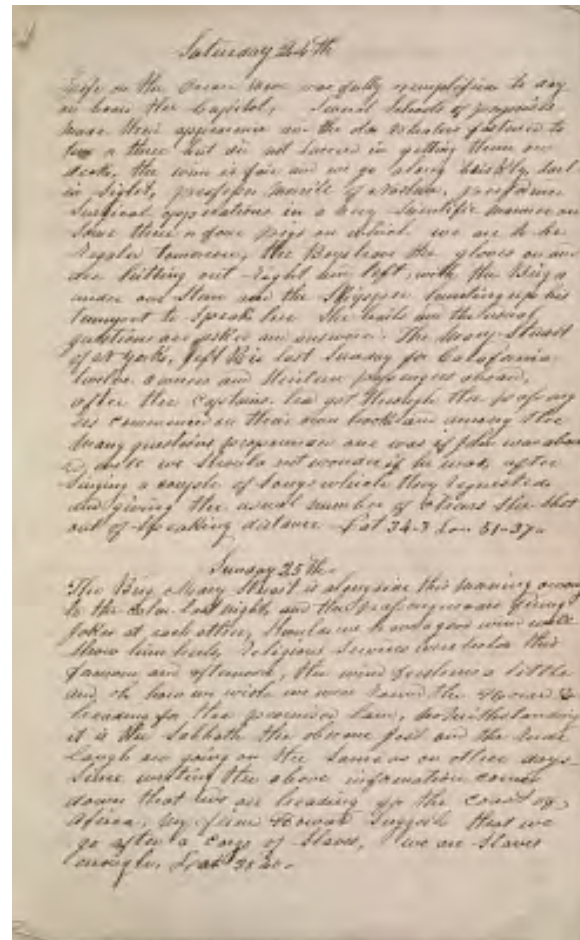 Saturday 24th
Life on the Ocean wave was fully exemplified to day
on board the Capitol, Several Schools of porpoises
made their appearance and the old Whalers fastened to
two or three but did not succeed in getting them on
deck, the wind is fair and we go along briskly, Sail
in Sight, professor of performed
Surgical opperations in a very Scientific manner on
Some three or four pigs on which we are to be
regaled tomorrow, the Boys have the gloves on and
are hitting out right and left, with the Brig
under our Stern and the Skipper his
trumpet to Speak her She hails and the usual
questions are asked and answered. The Mary Stuart
of N York, left Rio last Sunday for California
twelve owners and passengers aboard,
after the Captains had got through the passeng
ers commenced on their own hook and among the
many questions propounded one was if was aboa
rd, we Should not wonder if he was, after
Singing a couple of Songs which they requested
and giving the usual number of cheers She Shot
out of Speaking distance Lat 34-3 Lon 51-37
Sunday 25th
The Brig Mary Stuart is alongside this morning owing
to the calm last night, and the passengers are
jokes at each other, Should we have a good wind will
Show him heels, religious Services were held this
forenoon and afternoon, the wind freshens a little
and we wish we were round the Horn &
heading for the promised land, notwithstanding
it is the Sabbath the obscene jest and the rude
laugh are going on the Same as on other days
Since writing the above information comes
down that we are heading up the coast of
Africa, my friend Howard Suggests that we
go after a cargo of Slaves, we are Slaves
enough. Lat 35